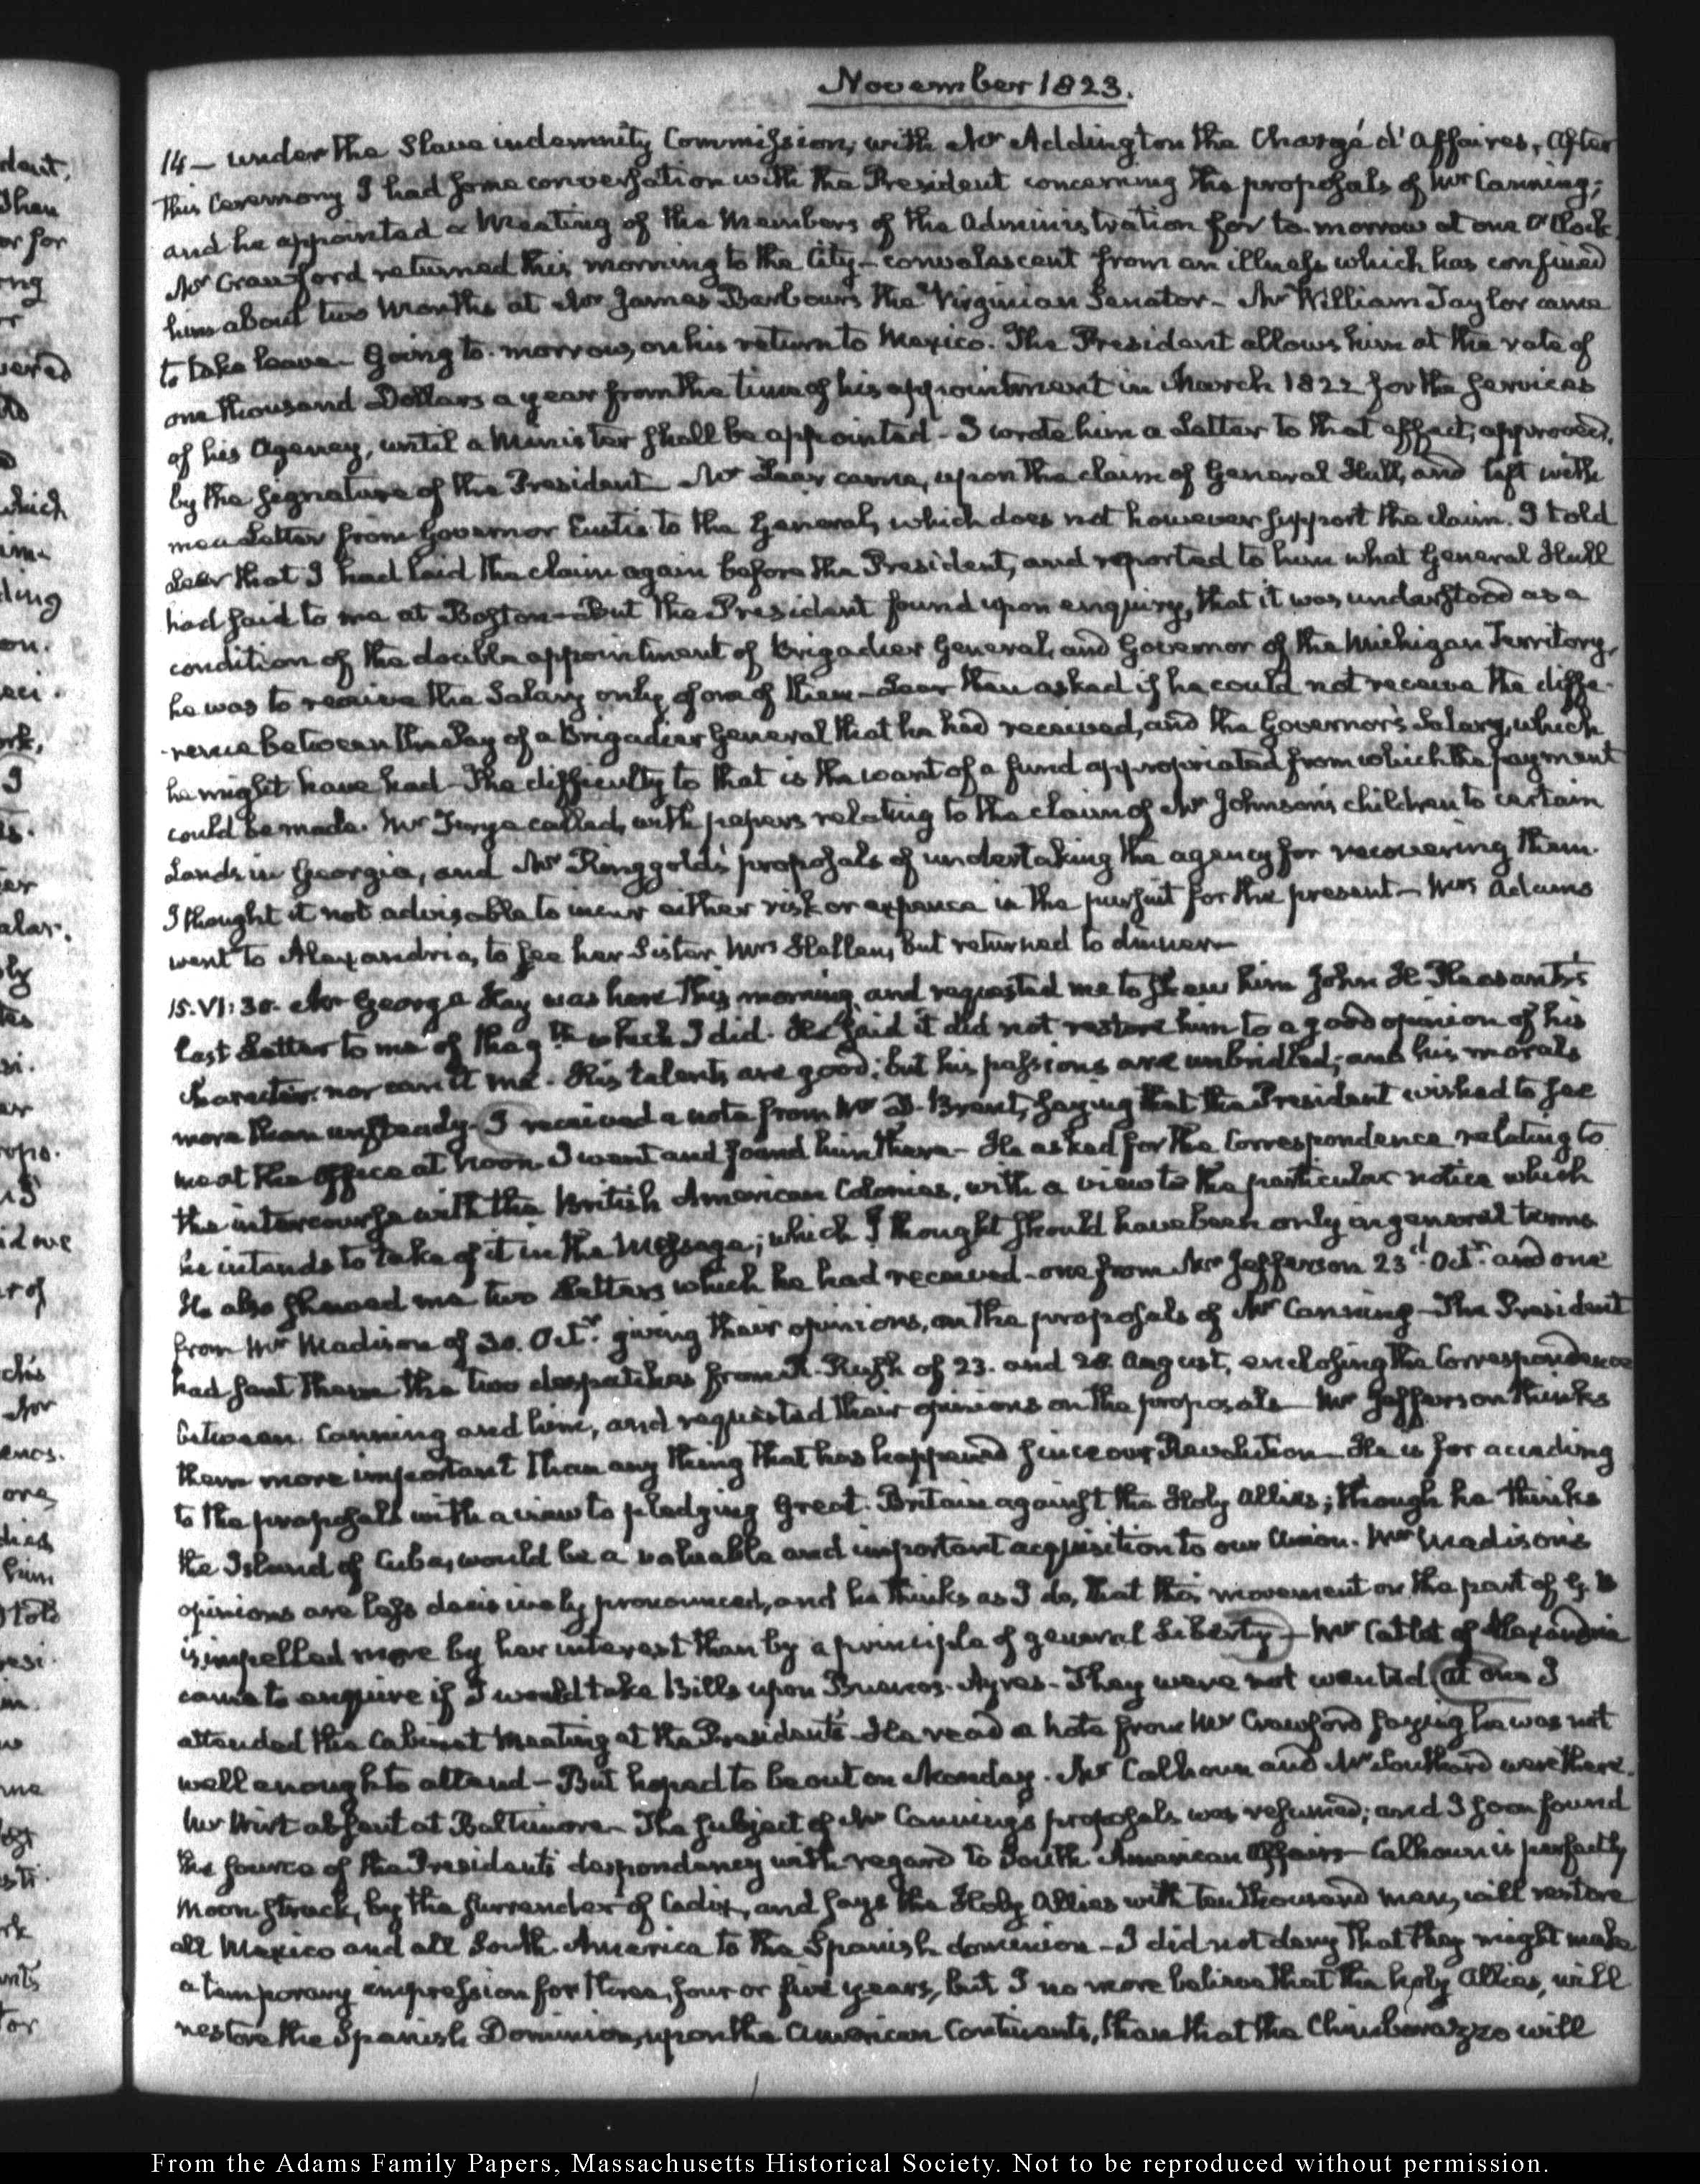 November 1823.
14 — under the Slave indemnity Commission, with Mr Addington the Chargé d'Affaires, After
this Ceremony I had some conversation with the President concerning the proposals of Mr Canning;
and he appointed a Meeting of the Members of the Administration for to-morrow at one O'Clock
Mr Crawford returned this morning to the City — convalescent from an illness which has confined
him about two Months at Mr James Barbour's the Virginian Senator — Mr William Taylor came
to take leave — Going to-morrow, on his return to Mexico. The President allows him at the rate of
one thousand Dollars a year from the time of his appointment in March 1822 for the services
of his Agency, until a Minister shall be appointed — I wrote him a Letter to that effect; approved,
by the signature of the President — Mr Lear came, upon the claim of General Hull, and left with
me a Letter from Governor Eustis to the General, which does not however support the claim. I told
Lear that I had laid the claim again before the President, and reported to him what General Hull
had said to me at Boston — But the President found upon enquiry, that it was understood as a
condition of the double appointment of Brigadier General, and Governor of the Michigan Territory,
he was to receive the Salary only of one of them — Lear then asked if he could not receive the diffe-
rence between the Pay of a Brigadier General that he had received, and the Governor's Salary, which
he might have had — The difficulty to that is the want of a fund appropriated from which the payment
could be made. Mr Frye called, with papers relating to the claim of Mr Johnson's children to certain
Lands in Georgia, and Mr Ringgold's proposals of undertaking the agency for recovering them.
I thought it not advisable to incur either risk or expence in the pursuit for the present — Mrs Adams
went to Alexandria, to see her Sister Mrs Hellen, but returned to dinner —
15. VI:30. Mr George Hay was here this morning, and requested me to shew him John H. Pleasants's
last Letter to me of the 9th which I did. He said it did not restore him to a good opinion of his
character: nor can it me. His talents are good; but his passions are unbridled; and his morals
more than unsteady. I received a note from Mr D. Brent, saying that the President wished to see
me at the Office at Noon. I went and found him there — He asked for the Correspondence relating to
the intercourse with the British American Colonies, with a view to the particular notice which
he intends to take of it in the Message; which I thought should have been only in general terms
He also shewed me two Letters which he had received — one from Mr Jefferson 23d Octr and one
from Mr Madison of 30. Octr giving their opinions, on the proposals of Mr Canning — The President
had sent them the two despatches from R. Rush of 23. and 28. August, enclosing the Correspondence
between Canning and him, and requested their opinions on the proposals — Mr Jefferson thinks
them more important than any thing that has happened since our Revolution — He is for acceding
to the proposals with a view to pledging Great-Britain against the Holy Allies; though he thinks
the Island of Cuba, would be a valuable and important acquisition to our Union. Mr Madison's
opinions are less decisively pronounced, and he thinks as I do, that this movement on the part of G. B
is impelled more by her interest than by a principle of general Liberty — Mr Catlet of Alexandria
came to enquire if I would take Bills upon Buenos-Ayres — They were not wanted at one I
attended the Cabinet Meeting at the President's — He read a note from Mr Crawford saying he was not
well enough to attend — But hoped to be out on Monday. Mr Calhoun and Mr Southard were there.
Mr Wirt absent at Baltimore — The subject of Mr Canning's proposals was resumed; and I soon found
the source of the President's despondency with regard to South American Affairs — Calhoun is perfectly
Moon-struck, by the surrender of Cadiz, and says the Holy Allies with ten thousand men, will restore
all Mexico and all South America to the Spanish dominion — I did not deny that they might make
a temporary impression for three, four or five years, but I no more believe that the holy Allies, will
restore the Spanish Dominion, upon the American Continents, than that the Chimborazzo will
From the Adams Family Papers, Massachusetts Historical Society. Not to be reproduced without permission.